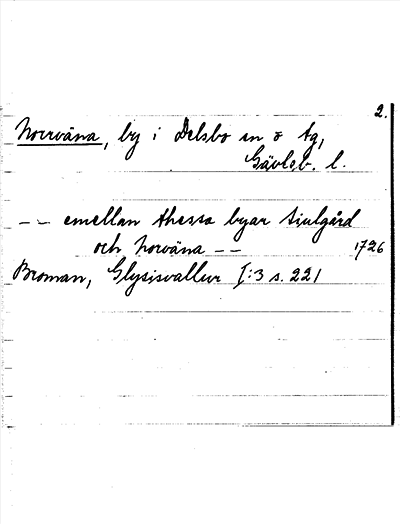 2.
Norrväna, by i Delsbo sn o tg,
Gävleb. l.
– – emellan thessa byar Sivlgård
och Norväna – – 1726
Broman, Glysisvallur I:3 s. 221